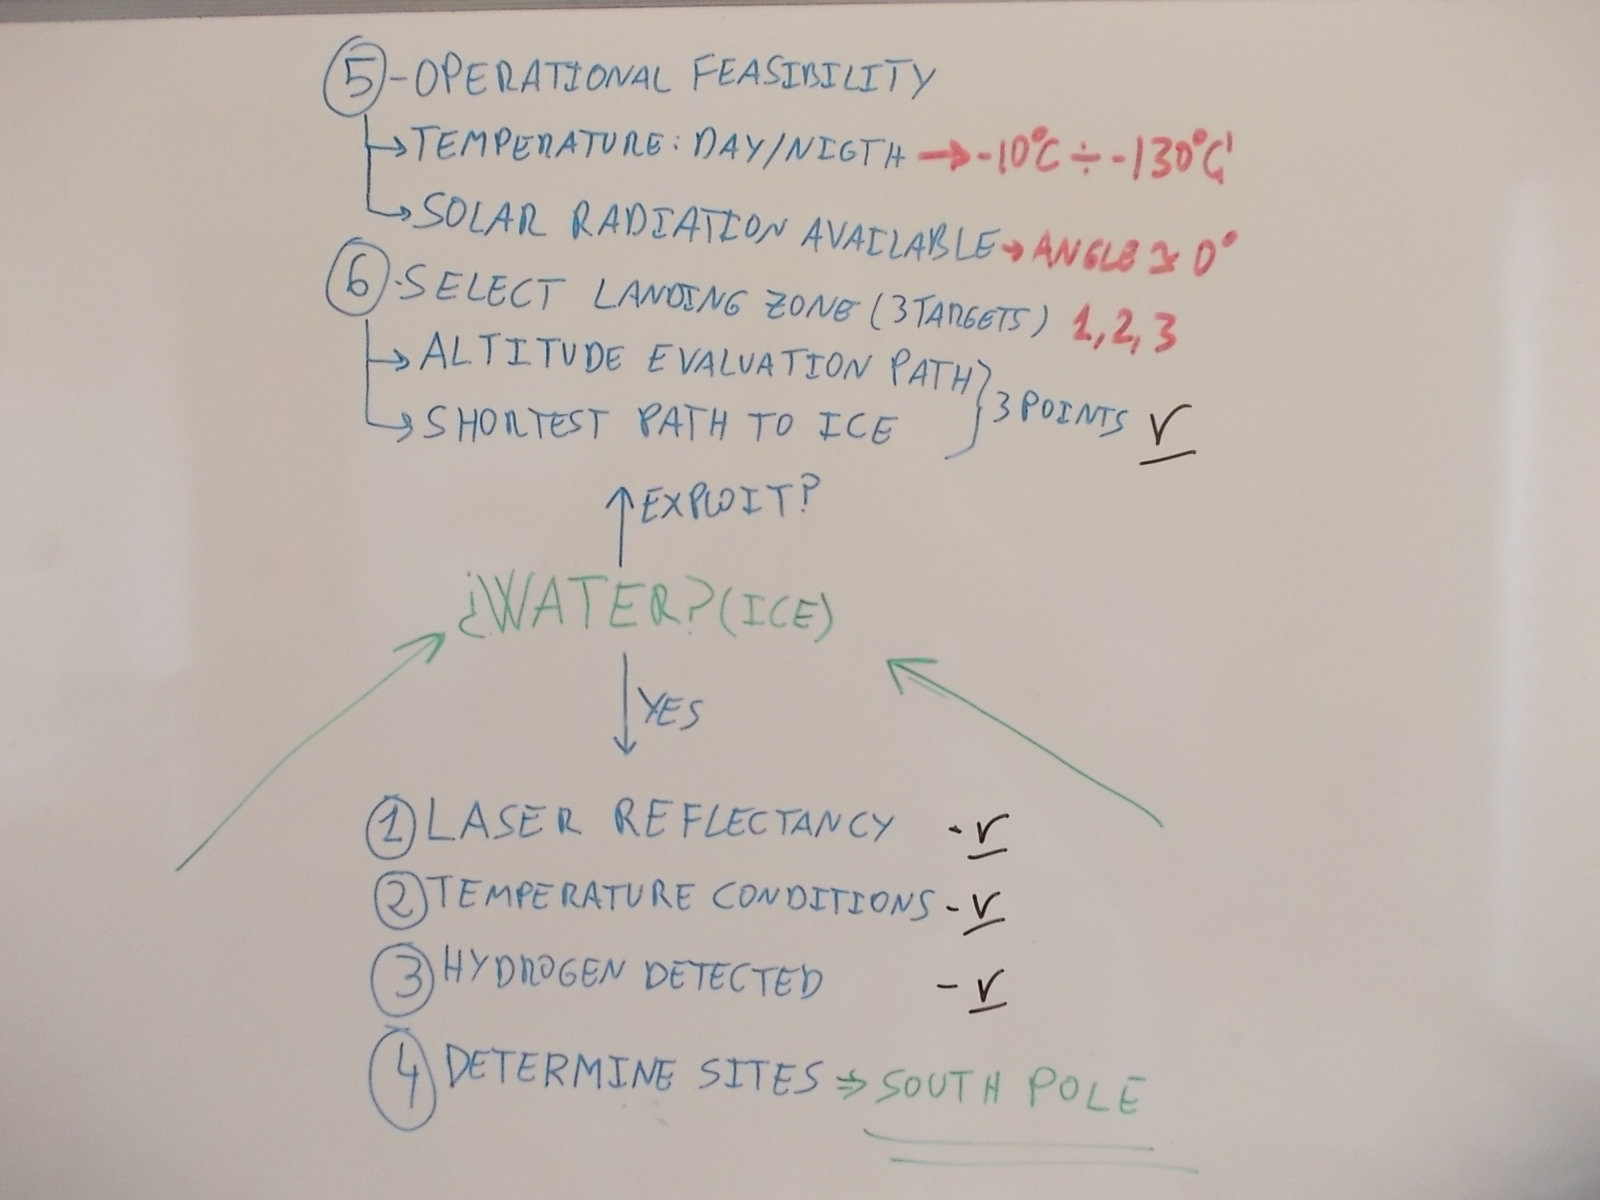 5 - OPERATIONAL FEASIBILITY
→ TEMPERATURE: DAY/NIGTH → -10°C ÷ -130°C
→ SOLAR RADIATION AVAILABLE → ANGLE ≃ 0°
6 - SELECT LANDING ZONE (3 TARGETS) 1, 2, 3
→ ALTITUDE EVALUATION PATH
→ SHORTEST PATH TO ICE } 3 POINTS √
↑ EXPLOIT?
¿WATER? (ICE)
↓ YES
1 LASER REFLECTANCY - √
2 TEMPERATURE CONDITIONS - √
3 HYDROGEN DETECTED - √
4 DETERMINE SITES ⇒ SOUTH POLE